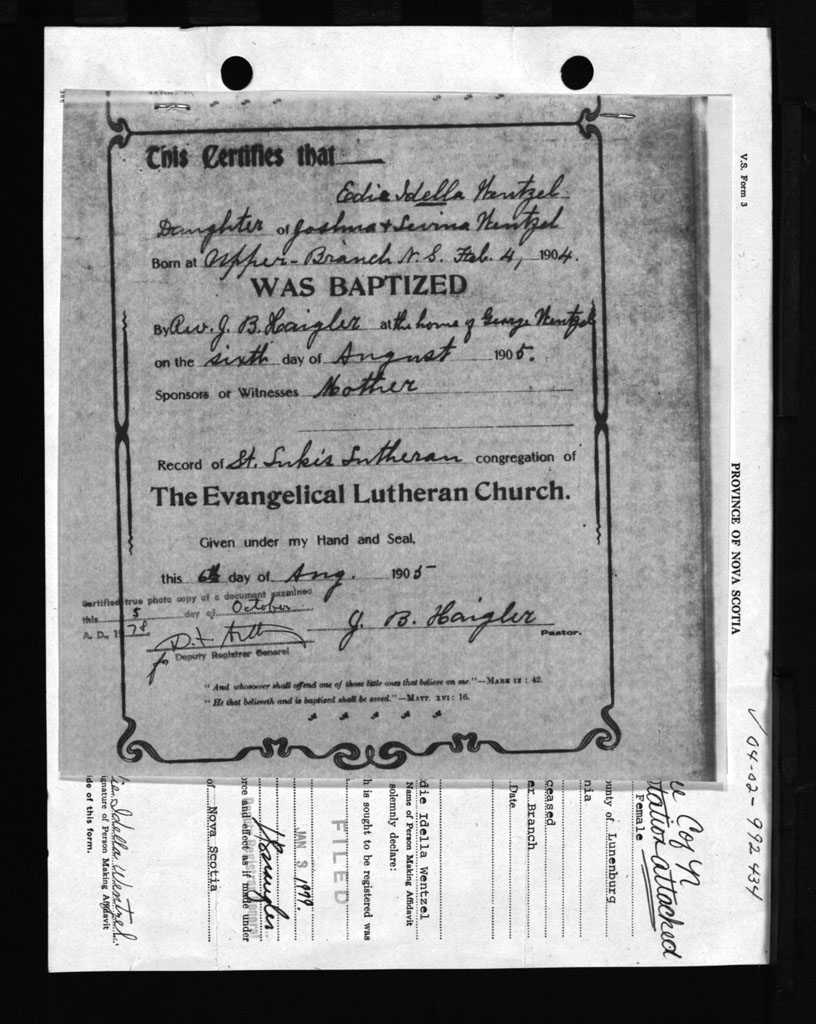 This Certifies that
Edie Idella Wentzel
Daughter of Joshua & Levina Wentzel
Born at Upper-Branch N.S. Feb. 4, 1904.
WAS BAPTIZED
By Rev. J. B. Haigler at the home of George Wentzel
on the sixth day of August 1905.
Sponsors or Witnesses Mother
Record of St. Luke's Lutheran congregation of
The Evangelical Lutheran Church.
Given under my Hand and Seal,
this 6th day of Aug. 1905
Certified true photo copy of a document examined
this 5 day of October
A. D., 1978
J. B. Haigler
Pastor.
for Deputy Registrar General
"And whosoever shall offend one of those little ones that believe on me."—MARK IX : 42.
"He that believeth and is baptized shall be saved."—MATT. XVI : 16.
V.S. Form 3
PROVINCE OF NOVA SCOTIA
✓ 04-02-992434
C of N
tation attached
Female
unty of Lunenburg
nia
ceased
er Branch
Date
die Idella Wentzel
Name of Person Making Affidavit
solemnly declare:
h is sought to be registered was
FILED
JAN 3 1979.
orce and effect as if made under
of Nova Scotia
die Idella Wentzel.
ignature of Person Making Affidavit
ide of this form.